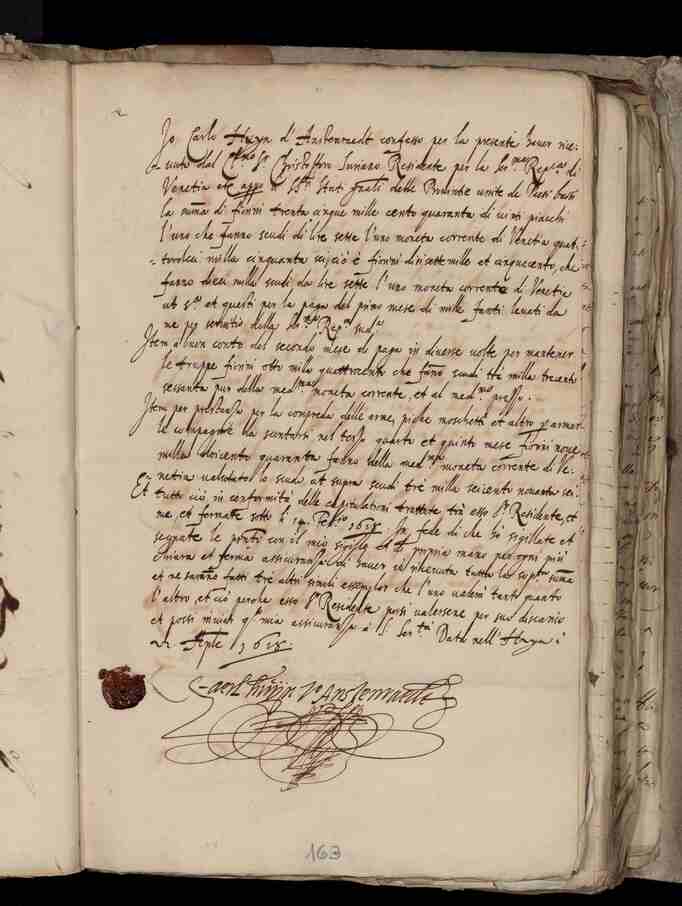 Io Carlo Huyn d'Anstenraedt confesso per la presente hauer rice:
uuto dal Cl.mo S.r Christofforo Suriano Residente per la Ser.ma Rep.ca di
Venetia etc. app.o li SS.ri Stati Grali delle Prouincie unite de Paesi bassi
la summa di fiorini trenta cinque mille cento quaranta di
l'uno che fanno scudi di lire sette l'uno moneta corrente di Venetia quat:
tordeci milla cinquanta sei, cio è fiorini dicisette mille et cinquecento, che
fanno dieci milla scudi da lire sette l'uno moneta corrente di Venetia
ut s.a et questi per la paga del primo mese di mille fanti leuati da
me per seruitio della Ser.ma Rep.ca sud.a
Item a buon conto del secondo mese di paga in diuerse uolte per mantener
le truppe fiorini otto milla quattrocento che fanno scudi tre milla trecento
sessanta pur della med.ma moneta corrente, et al med.mo prezzo.
Item per prestanza per la compreda delle arme, piche moschetti et altro p armar
le compagnie da scontarsi nel terzo quarto et quinto mese fiorini noue
milla doicento quaranta fanno della med.ma moneta corrente di Ve:
netia ualutato lo scudo ut supra scudi tre milla seicento nouanta sei.
Et tutto ciò in conformità delle capitulationi trattate trà esso S.r Residente, et
me, et fermate sotto li Feb.ro 1618. In fede di che hò sigillate et
segnate le pnti con il mio sigillo et de propria mano per ogni più
chiara et ferma assicuranza di hauer io riceuuta tutta la sup.ta summa
et ne saranno fatti tre altri simili essemplar che l'uno valerà tanto quanto
l'altro, et ciò perche esso S.r Residente possi ualersene per suo discarico
et possi inuiar q.sta mia assicuranza à S. Ser.tà Data nell'Haya à
Aple 1618.
Caerl huyn Va Anstenraedt
163